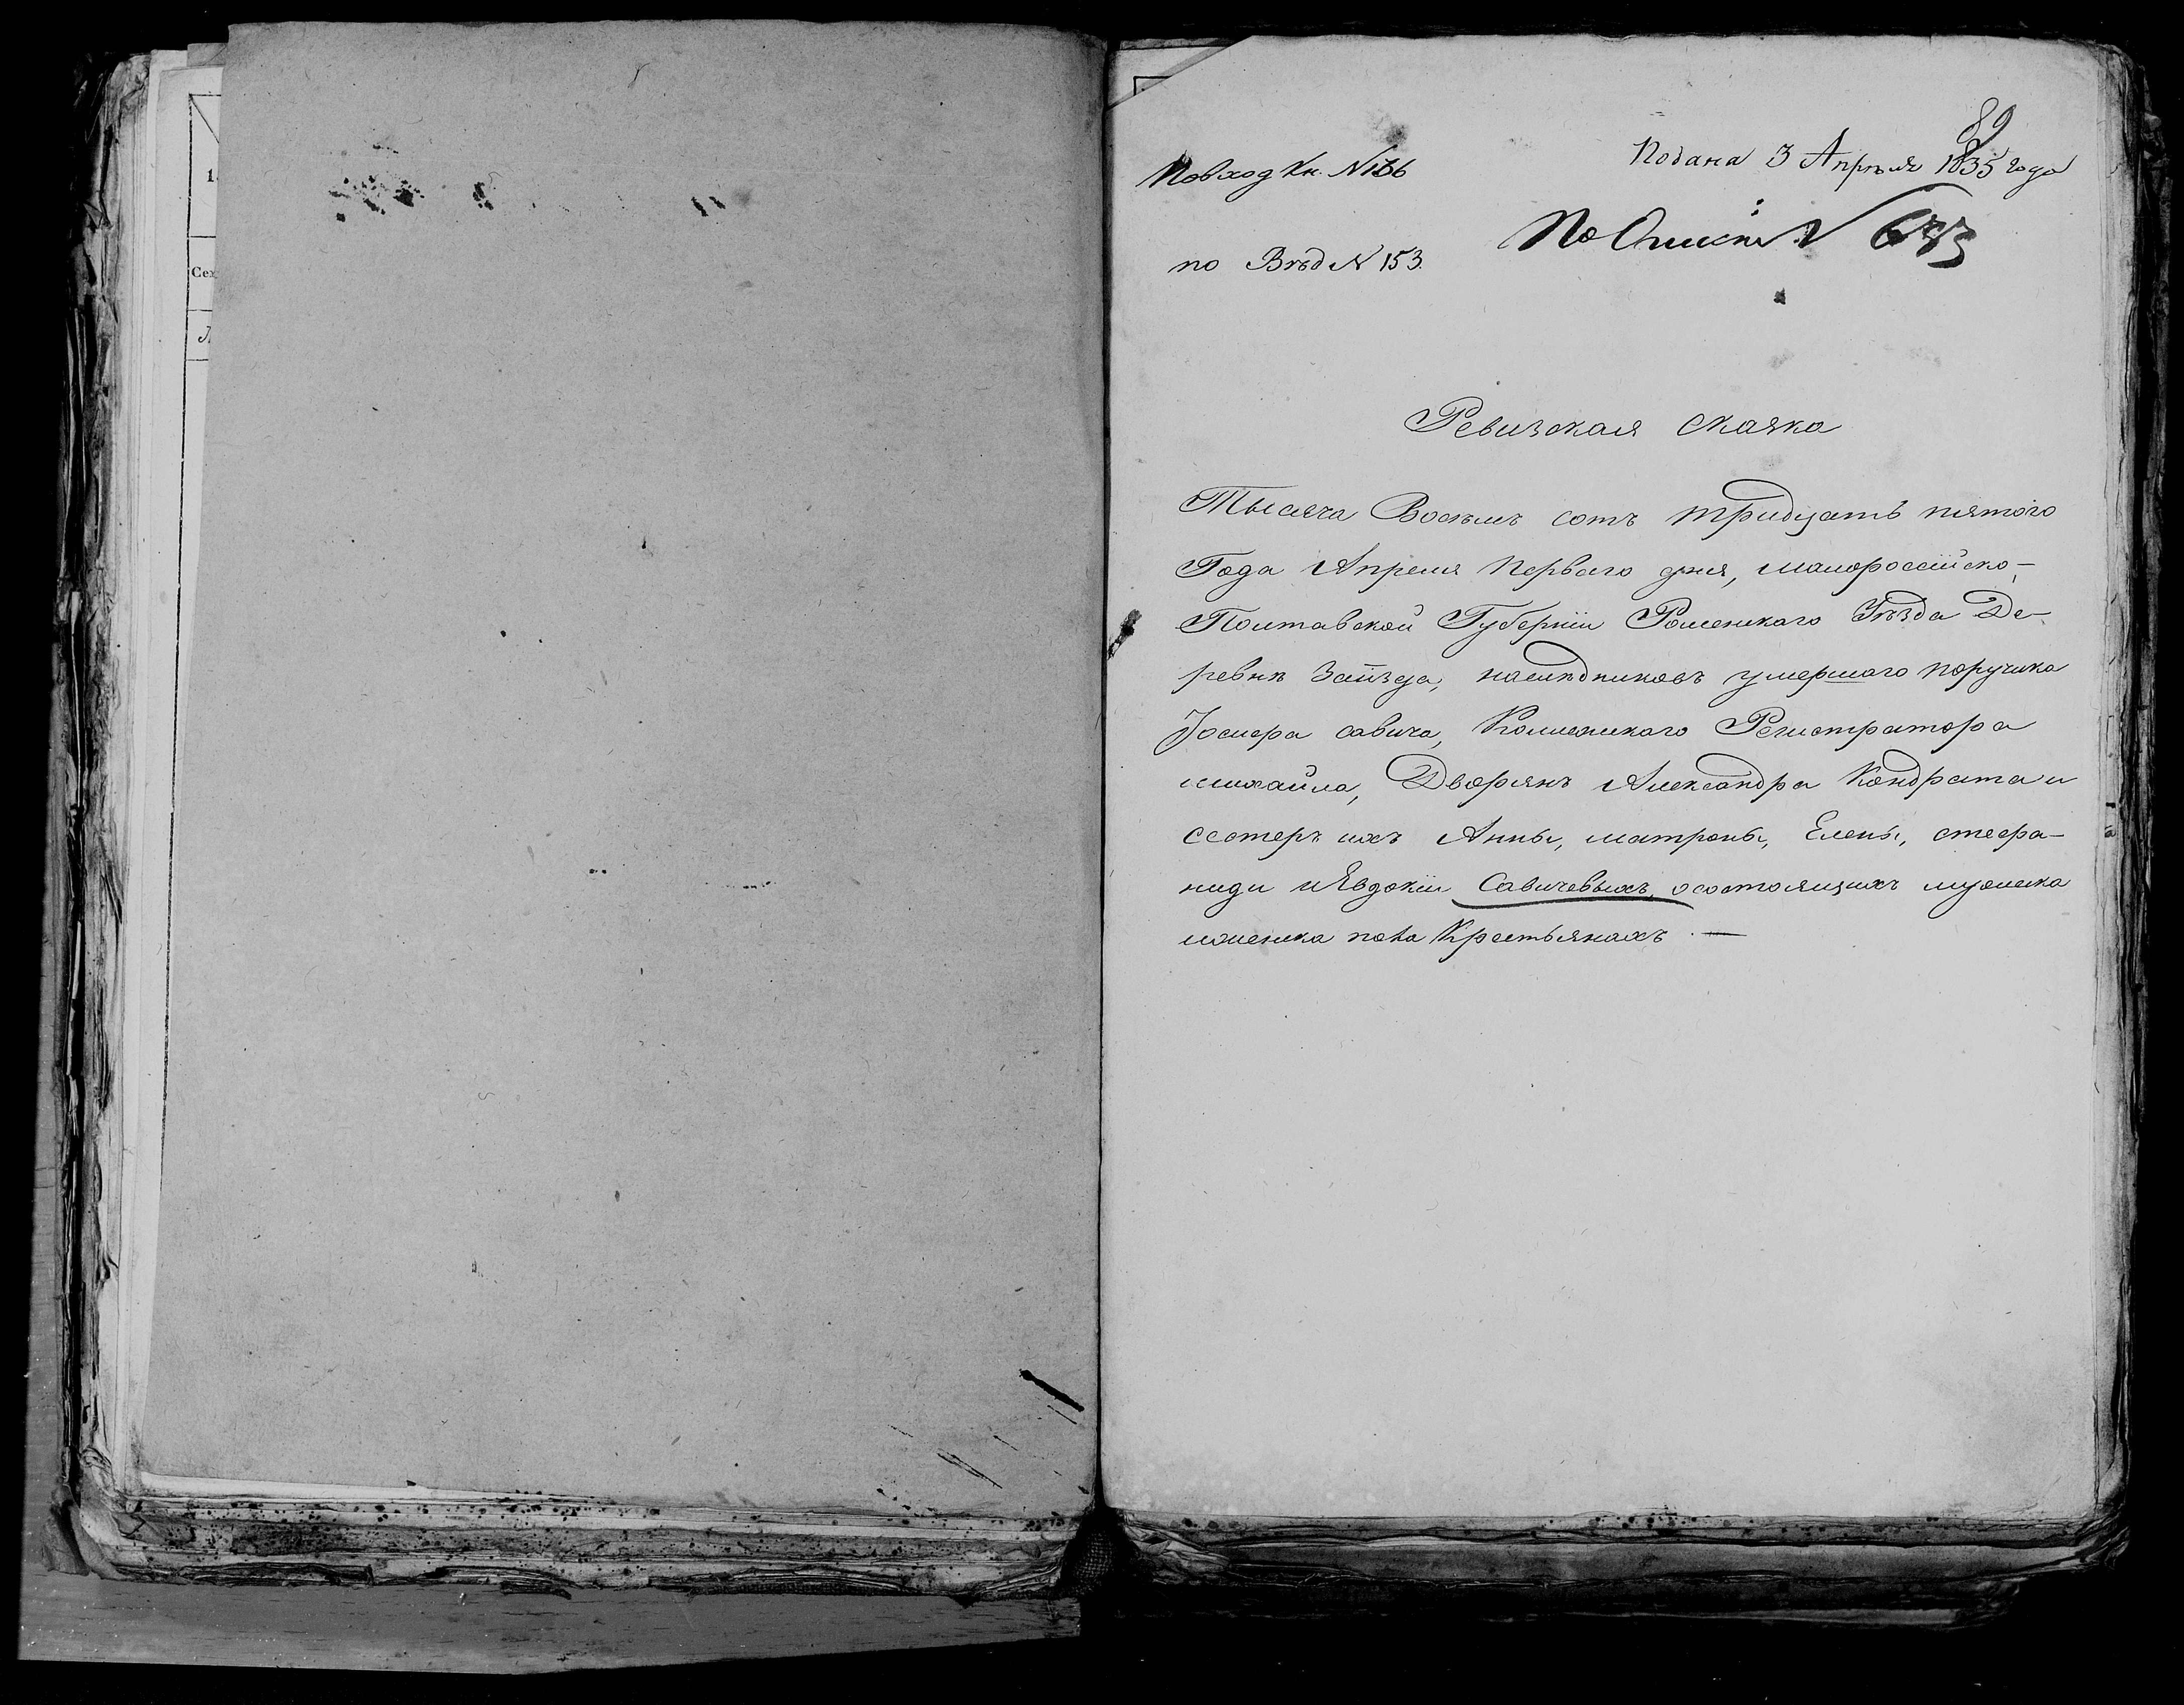 89
Повход Кн. N 166
Подана 3 Апрѣля 1835 года
По Описи N
по Вѣд N 153.
Ревизская сказка
Тысяча Восемь сотъ тридцать пятого
Года Апреля Перваго дня, малороссійско-
Полтавской Губерніи Роменскаго Уѣзда Де-
ревнѣ Заизда, наслѣдниковъ умершаго поручика
Іосифа савича, Коллежскаго Регистратора
михайла, Дворянъ Александра Кондрата и
сестеръ ихъ Анны, матроны, Елены, стефа-
ниди и Явдокіи Савичевыхъ, осостоящихъ мужеска
иженска пола Крестьянахъ. —